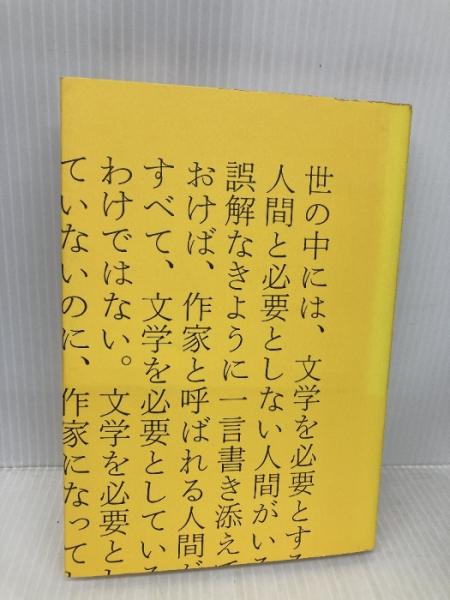 世の中には、文学を必要とする
人間と必要としない人間がいる
誤解なきように一言書き添えて
おけば、作家と呼ばれる人間が
すべて、文学を必要としている
わけではない。文学を必要とし
ていないのに、作家になってい